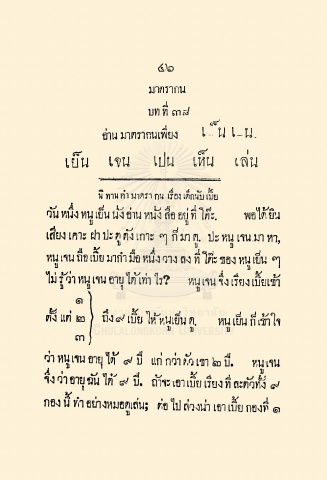 ๔๖
มาตรากน
บทที่ ๓๘
อ่าน มาตรากนเพียง เ–็น เ–น.
เย็น เจน เปน เห็น เล่น
นิทานอ่ามาตรา กน เรื่อง เด็กนับเบี้ย
วัน หนึ่ง หนู เย็น นั่ง อ่าน หนัง สือ อยู่ ที่ โต๊ะ. พอ ได้ ยิน
เสียง เคาะ ฝา ปะ ตู ดัง เกาะ ๆ ก็ มา ดู. ปะ หนู เจน มา หา,
หนู เจน ถือ เบี้ย มา กำ มือ หนึ่ง วาง ลง ที่ โต๊ะ ของ หนู เย็น ๆ
ไม่ รู้ ว่า หนู เจน อายุ ได้ เท่า ไร? หนู เจน จึ่ง เรียง เบี้ย เข้า
๑
ตั้ง แต่ ๒ ถึง ๙ เบี้ย ให้ หนู เย็น ดู, หนู เย็น ก็ เข้า ใจ
๓
ว่า หนู เจน อายุ ได้ ๙ ปี แก่ กว่า ตัว เขา ๒ ปี. หนู เจน
จึ่ง ว่า อายุ ฉัน ได้ ๙ ปี. ถ้า จะ เอา เบี้ย เรียง ที่ ละ ตัว ทั้ง ๙
กอง นี้ ทำ อย่าง หมอ ดู เล่น; ต่อ ไป ล่วง น่า เอา เบี้ย กอง ที่ ๑
CHULALONGKORN UNIVERSITY